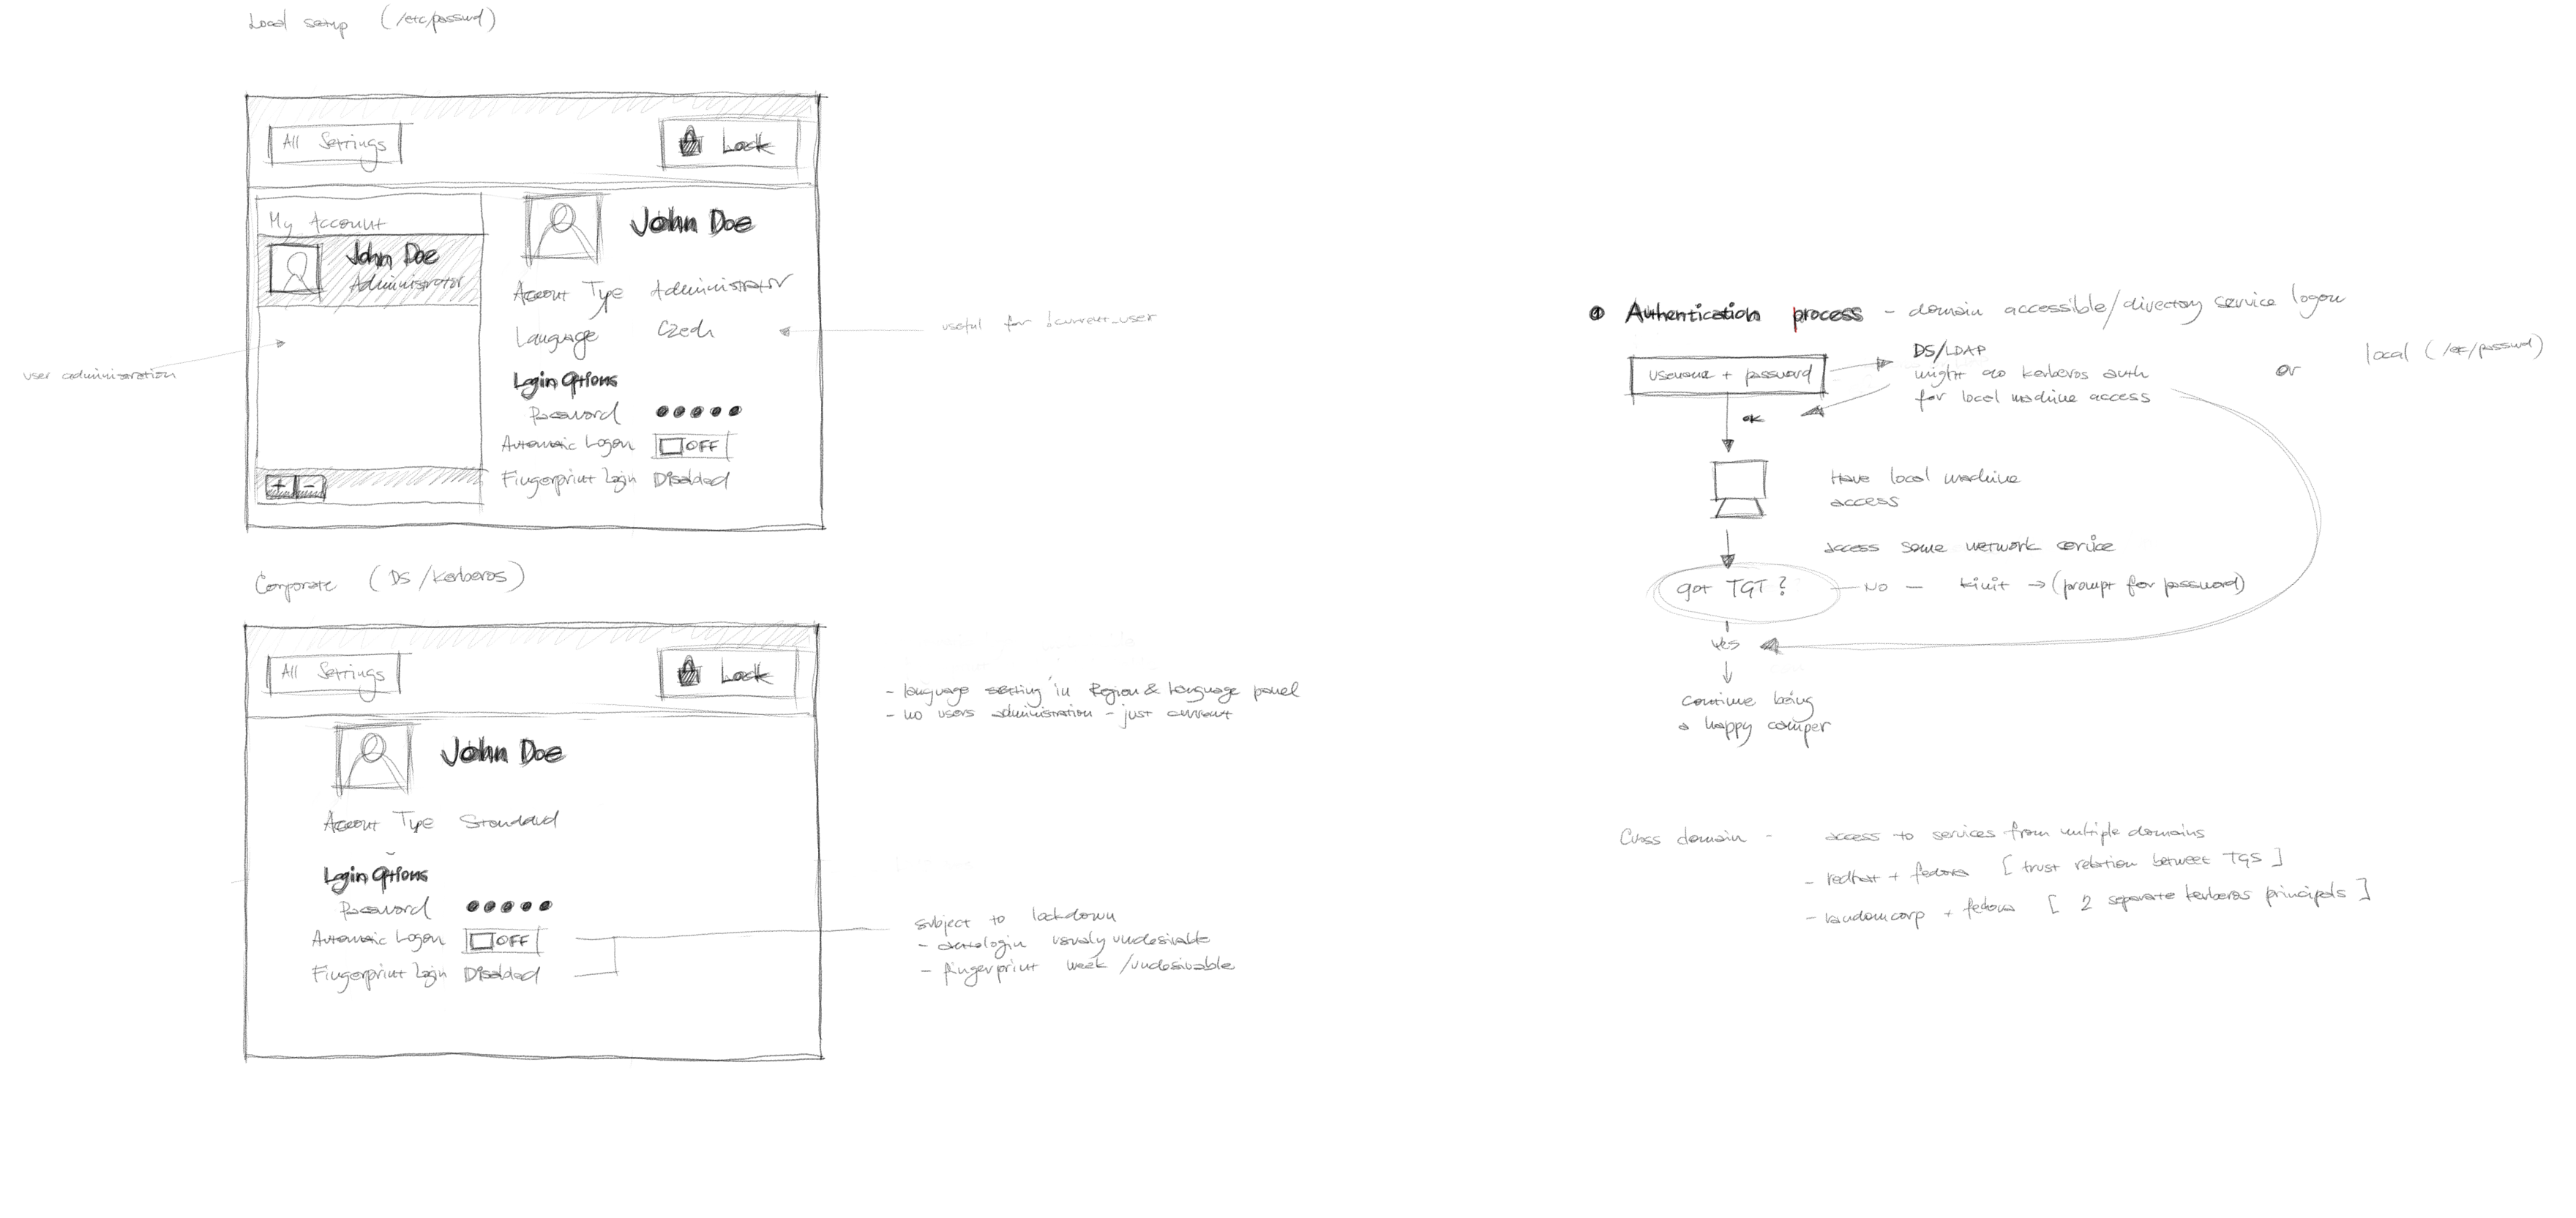 Local setup (/etc/passwd)
All Settings
Lock
My Account
John Doe
Administrator
John Doe
Account Type Administrator
Language Czech
Login Options
Password
Automatic Logon OFF
Fingerprint Login Disabled
+ -
user administration
useful for !current_user
Corporate (DS/Kerberos)
All Settings
Lock
John Doe
Account Type Standard
Login Options
Password
Automatic Logon OFF
Fingerprint Login Disabled
- language setting in Region & Language panel
- no users administration - just current
subject to lockdown
- autologin usualy undesirable
- fingerprint weak /undesirable
Authentication process - domain accessible/directory service logon
username + password
DS/LDAP
might do kerberos auth
for local machine access
or
local (/etc/passwd)
OK
Have local machine
access
access some network service
got TGT?
NO - kinit → (prompt for password)
Yes
continue being
a happy camper
Cross domain - access to services from multiple domains
- redhat + fedora [ trust relation between TGS ]
- randomcorp + fedora [ 2 separate kerberos principals ]